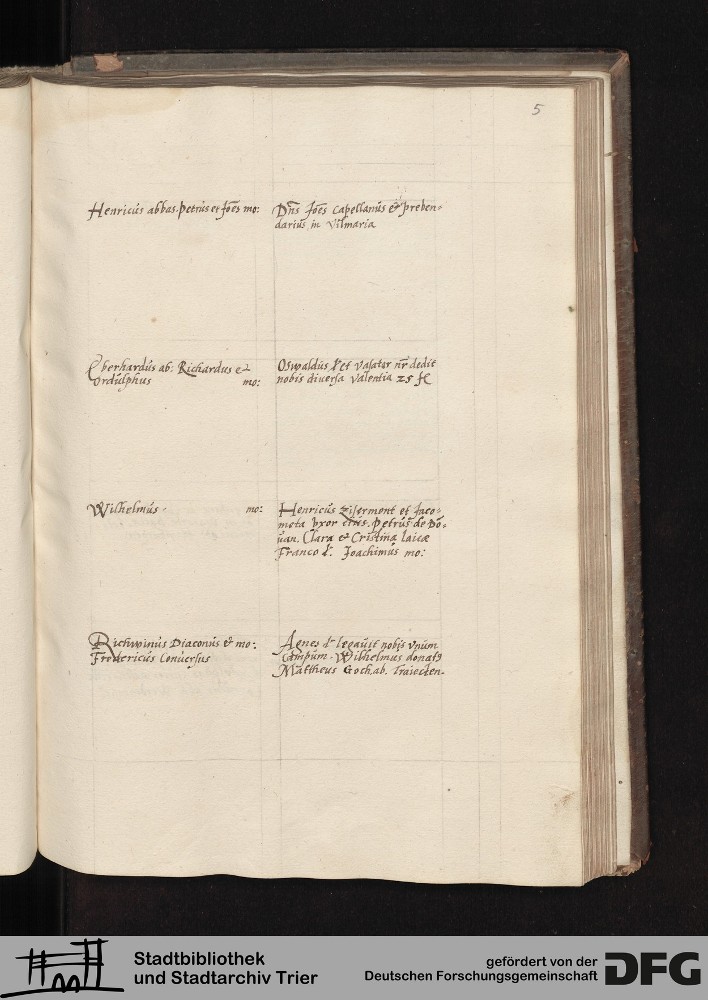 5
Henricus abbas. Petrus et Joēs mo:
Dn̄s Joēs Capellanus & preben-
darius in Vilmaria
Eberhardus ab: Richardus &
Ordulphus mo:
Oswaldus et nr̄ dedit
nobis diuersa valentia 25
Wilhelmus mo:
Henricus et Jaco-
meta vxor eius. Petrus de Do-
uan. Clara & Cristina laicæ
Franco Joachimus mo:
Richwinus Diaconus & mo:
Fredericus Conuersus
Agnes legauit nobis vnum
Campum. Wilhelmus
Mattheus Goch. ab. Traiecten.
Stadtbibliothek
und Stadtarchiv Trier
gefördert von der
Deutschen Forschungsgemeinschaft
DFG